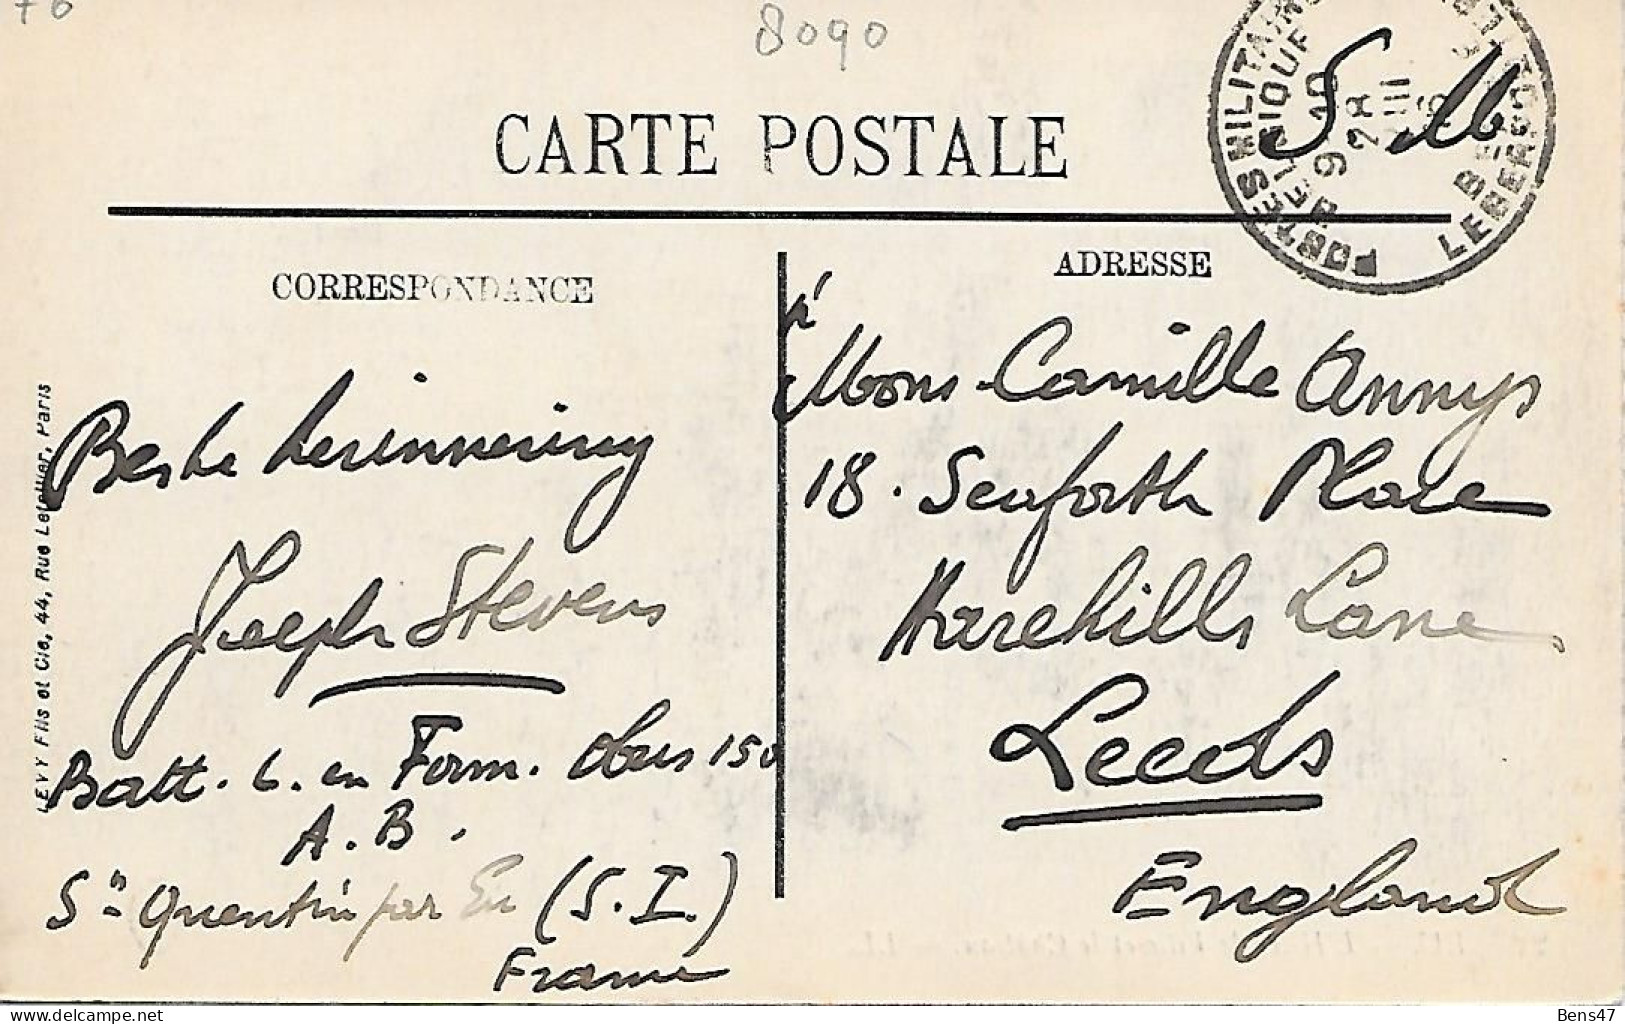 76
8090
CARTE POSTALE
S M
POSTES MILITAIRES BELGIQUE
9 - 10
28
VIII
BELGIË
LEGERPOSTERIJ
CORRESPONDANCE
ADRESSE
à
Mons. Camille Annys
18. Seaforth Place
Harehills Lane
Leeds
England
Beste herinnering
Joseph Stevens
Batt. L. en Form. Obus 150
A. B.
St Quentin par Eu (S. I.)
France
LEVY Fils et Cie, 44, Rue Letellier, Paris
Bens47